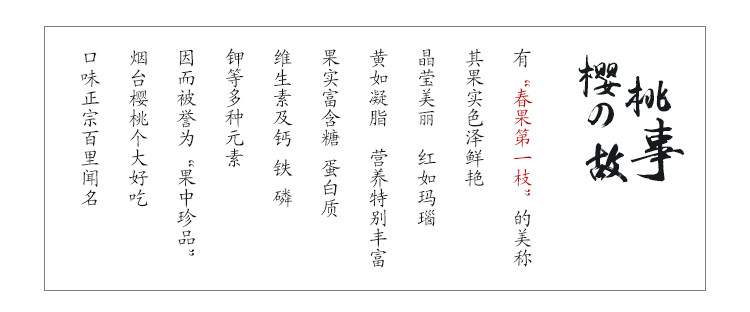 樱桃の故事
有“春果第一枝”的美称
其果实色泽鲜艳
晶莹美丽 红如玛瑙
黄如凝脂 营养特别丰富
果实富含糖 蛋白质
维生素及钙 铁 磷
钾等多种元素
因而被誉为“果中珍品”
烟台樱桃个大好吃
口味正宗百里闻名